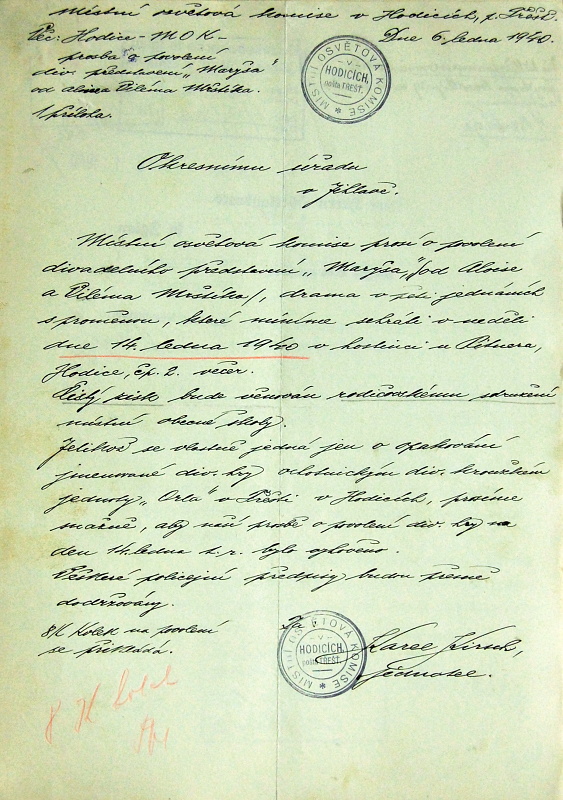 Místní osvětová komise v Hodicích, p. Třešť.
Věc: Hodice - MOK - Dne 6. ledna 1940.
prosba o povolení
div. představení „Maryša"
od Aloise Viléma Mrštíka.
1 příloha.
MÍSTNÍ OSVĚTOVÁ KOMISE
- V -
HODICÍCH,
pošta TŘEŠŤ.
Okresnímu úřadu
v Jihlavě.
Místní osvětová komise prosí o povolení
divadelního představení „Maryša", /od Aloise
a Viléma Mrštíka/, drama v pěti jednáních
s proměnou, které míníme sehráti v neděli
dne 14. ledna 1940 v hostinci u
Hodice, čp. 2. večer.
Čistý zisk bude věnován rodičovskému sdružení
místní obecné školy.
Jelikož se vlastně jedná jen o opakování
jmenované div. hry ochotnickým div. kroužkem
jednoty „Orla" v Třešti v Hodicích, prosíme
snažně, aby naší prosbě o povolení div. hry na
den 14. ledna t. r. bylo vyhověno.
Veškeré policejní předpisy budou přesně
dodržovány.
8K Kolek na povolení
se přikládá.
Za
MÍSTNÍ OSVĚTOVÁ KOMISE
- V -
HODICÍCH,
pošta TŘEŠŤ.
Karel
jednatel.
8 K kolek